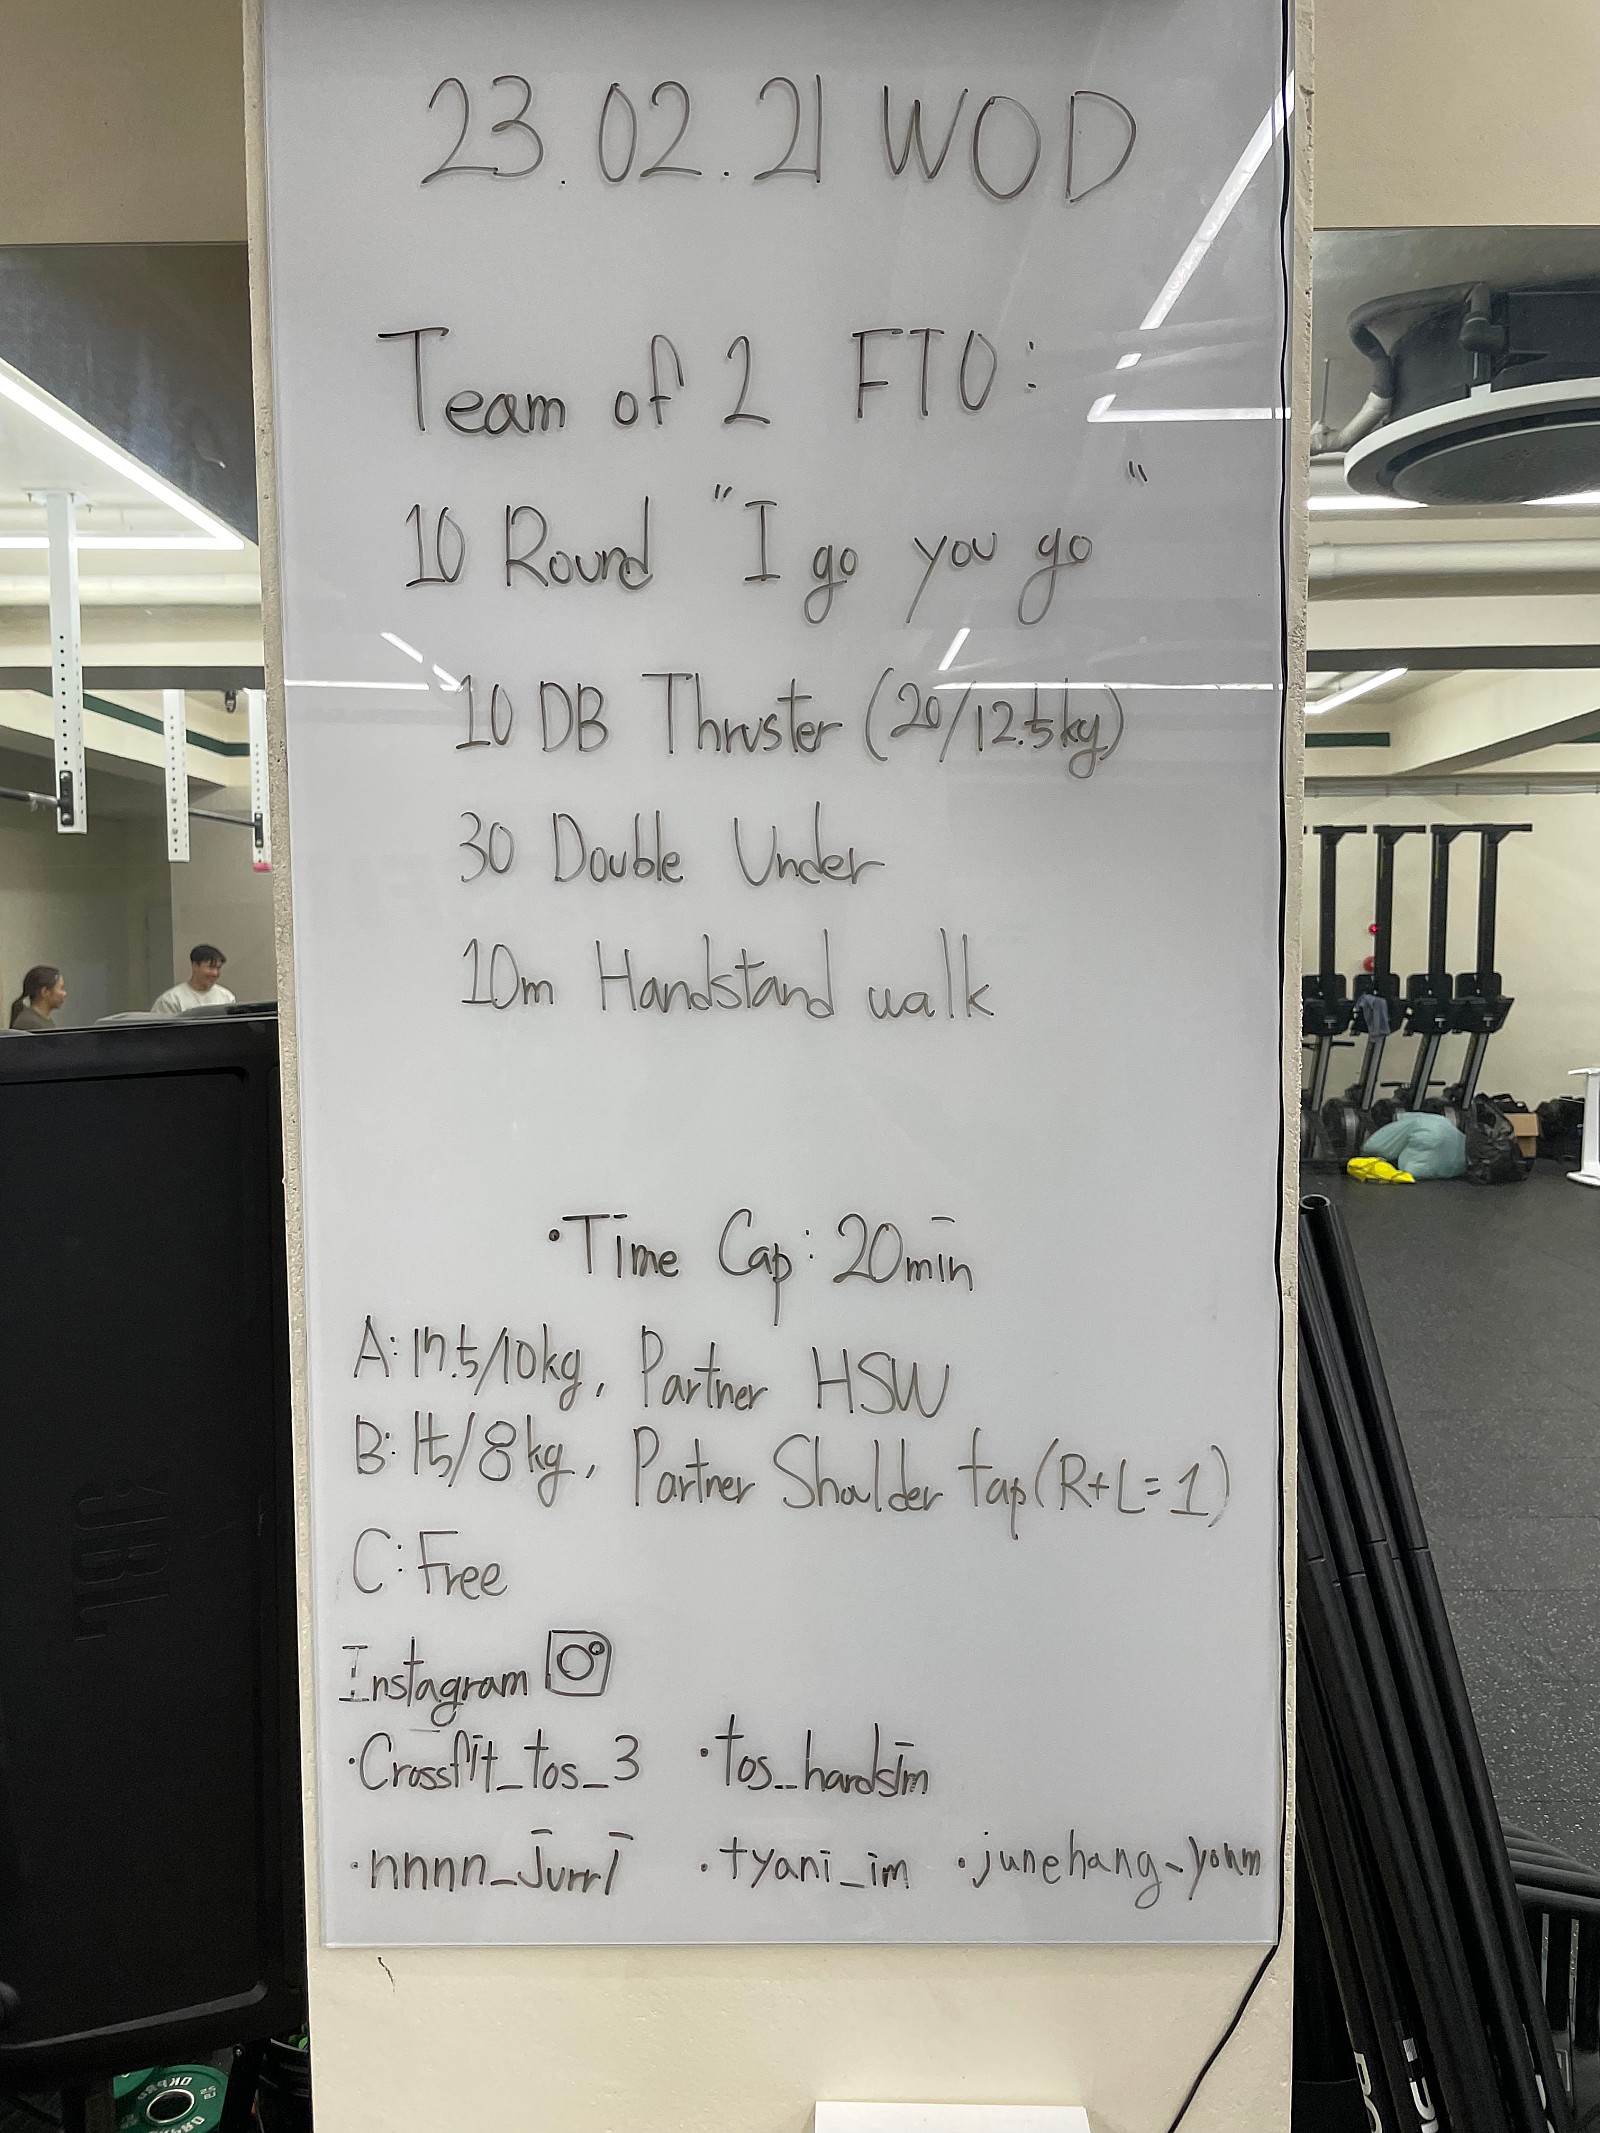 23.02.21 WOD
Team of 2 FTO:
10 Round "I go you go"
10 DB Thruster (20/12.5kg)
30 Double Under
10m Handstand walk
•Time Cap: 20min
A: 17.5/10kg, Partner HSW
B: 15/8kg, Partner Shoulder tap (R+L=1)
C: Free
Instagram
•Crossfit_tos_3 •tos_hardsim
•nnnn_jurrl •tyani_im •junehang_yohm
JBL